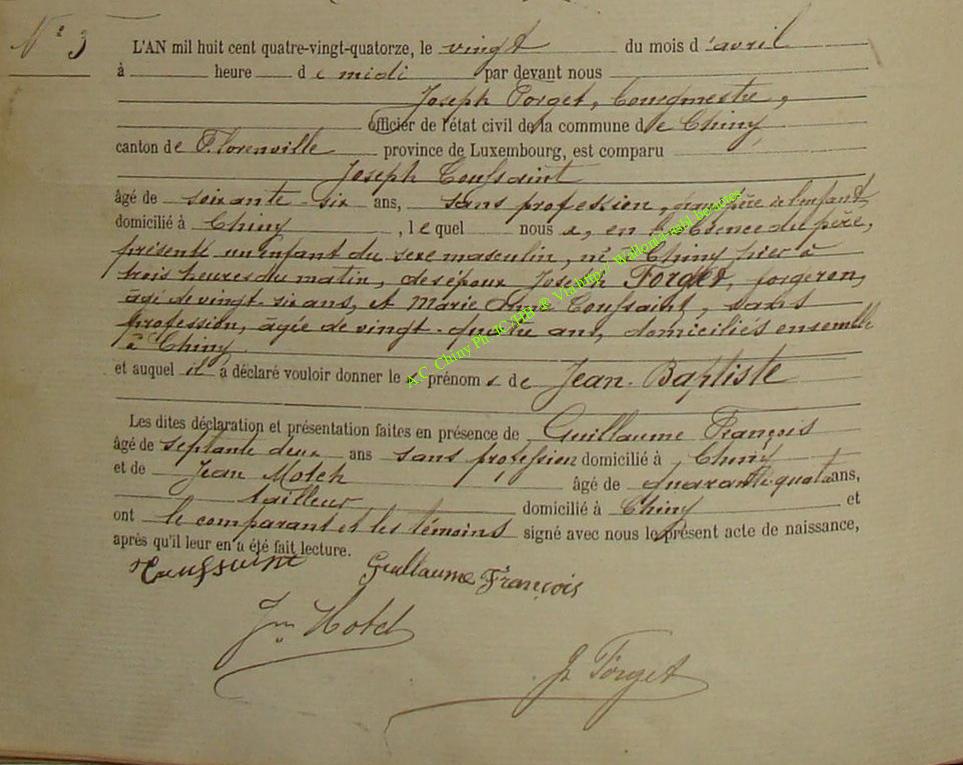 Nº 3
L'AN mil huit cent quatre-vingt-quatorze, le vingt du mois d'avril
à heure de midi par devant nous
Joseph Forget, bourgmestre,
officier de l'état civil de la commune de Chiny,
canton de Florenville province de Luxembourg, est comparu
Joseph Toussaint
âgé de soixante-six ans, sans profession, de l'enfant,
domicilié à Chiny, lequel nous a, en du père,
présenté un enfant du sexe masculin, né à Chiny hier à
trois heures du matin, des époux Joseph Forget, forgeron,
âgé de vingt-six ans, et Marie Toussaint, sans
profession, âgée de vingt-quatre ans, domiciliés ensemble
à Chiny
et auquel il a déclaré vouloir donner les prénoms de Jean-Baptiste
Les dites déclaration et présentation faites en présence de Guillaume François
âgé de septante deux ans sans profession domicilié à Chiny
et de Jean Motch âgé de quarante-quatre ans,
tailleur domicilié à Chiny et
ont le comparant et les témoins signé avec nous le présent acte de naissance,
après qu'il leur en a été fait lecture.
Toussaint Guillaume François
Jn Motch
J. Forget
A.C. Chiny http:// Wallonia-asbl.be